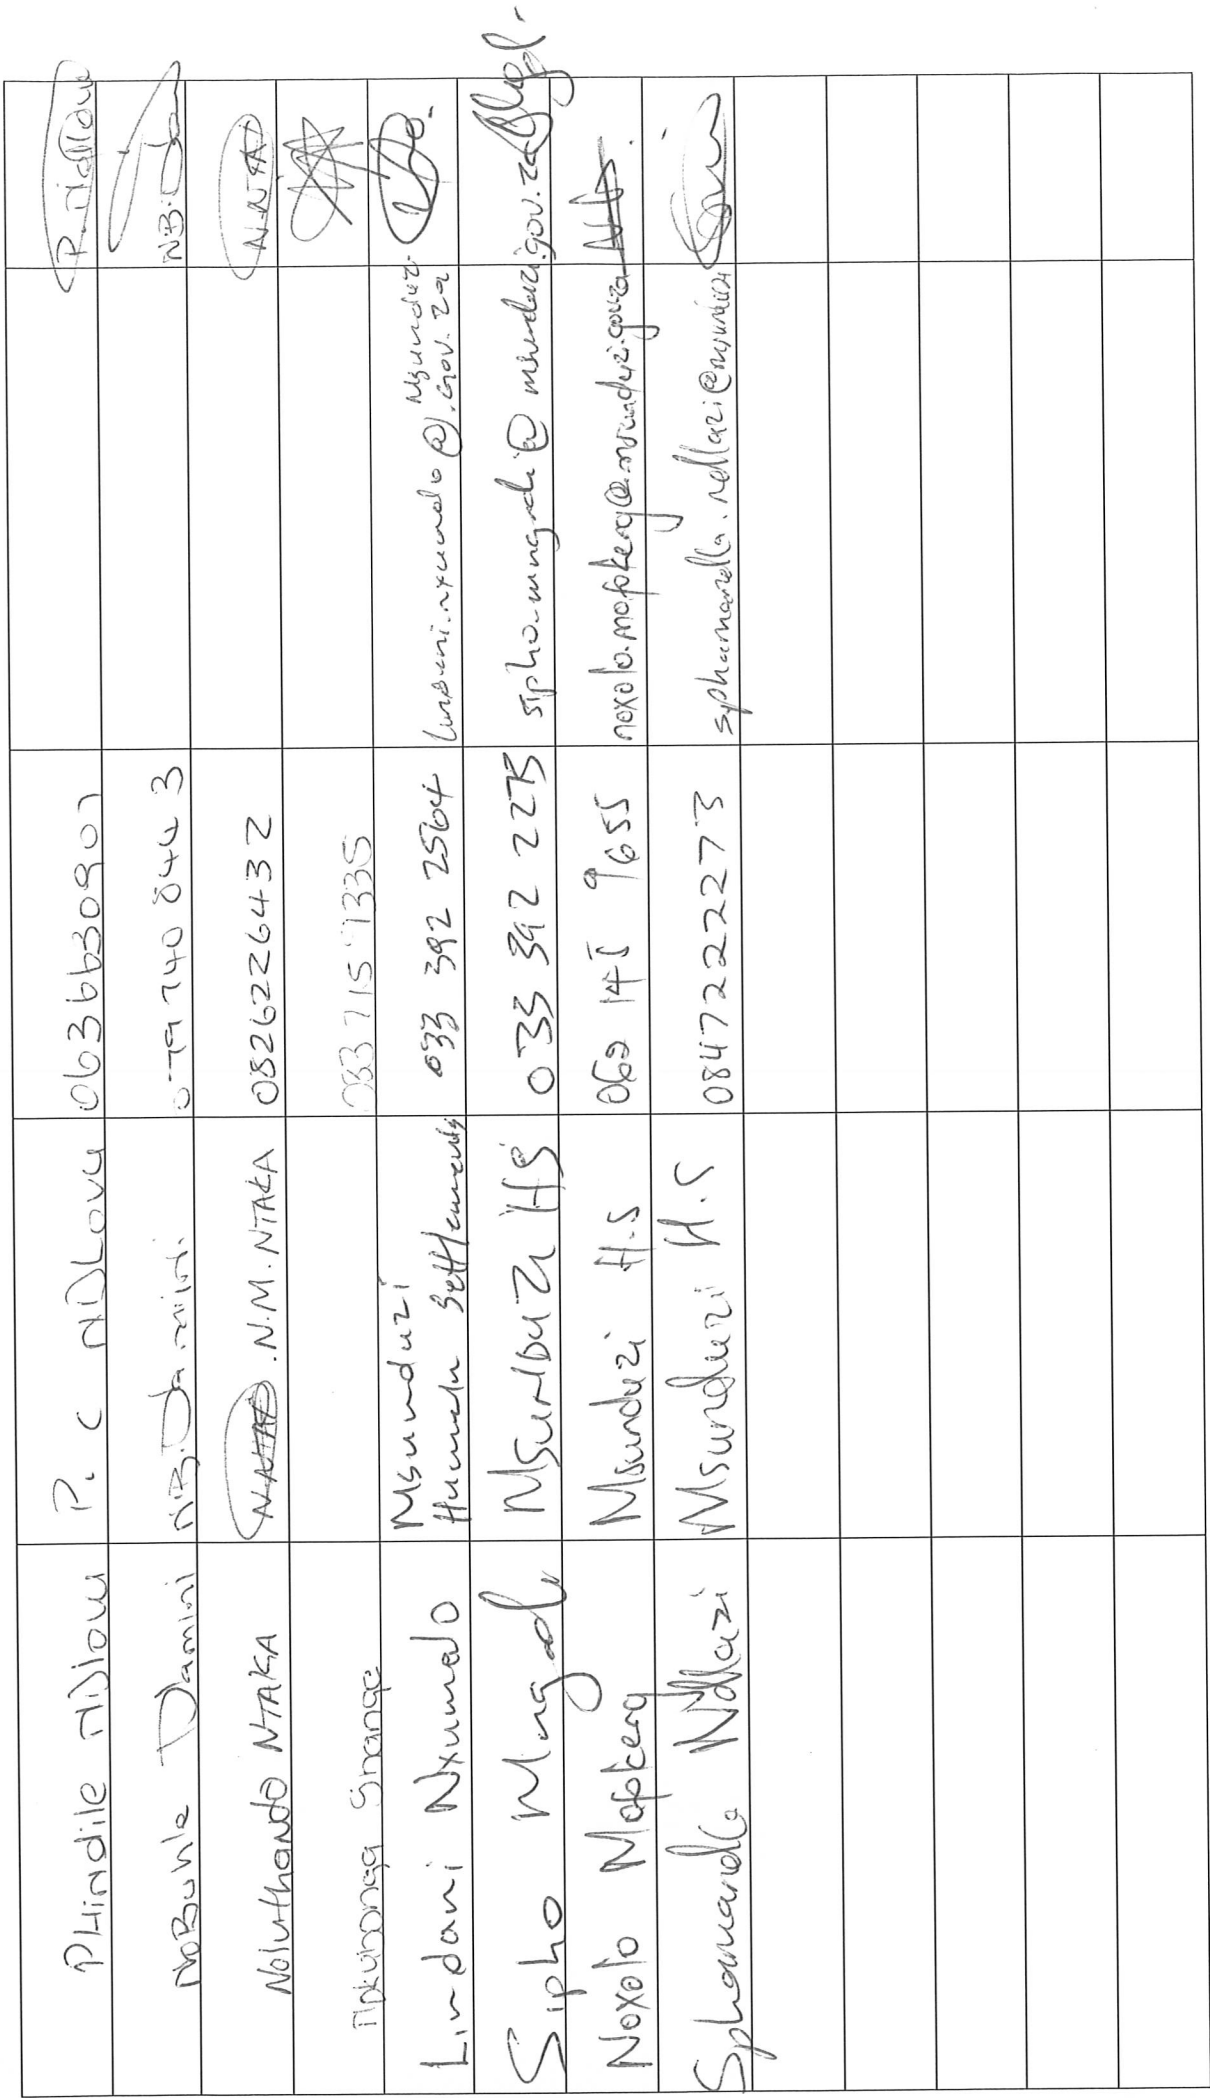 PHindile NDlovu P. C NDLovu 0636630901 P. Ndlovu
NoBuhle Damini NB. Damini 0797408443 NB. Dam
Noluthando NTAKA N.M. NTAKA 0826226432 N.NTA
083 715 9335
Lindani Nxumalo Msunduzi Human Settlements 033 392 2564 lindani.nxumalo@msunduzi.gov.za
Sipho Mngadi MSUNDUZI HS 033 392 2275 sipho.mngadi@msunduzi.gov.za
Noxolo Mofokeng Msunduzi H.S noxolo.mofokeng@msunduzi.gov.za
Sphamandla Ndlazi Msunduzi H.S 0847222273 sphamandla.ndlazi@msunduzi